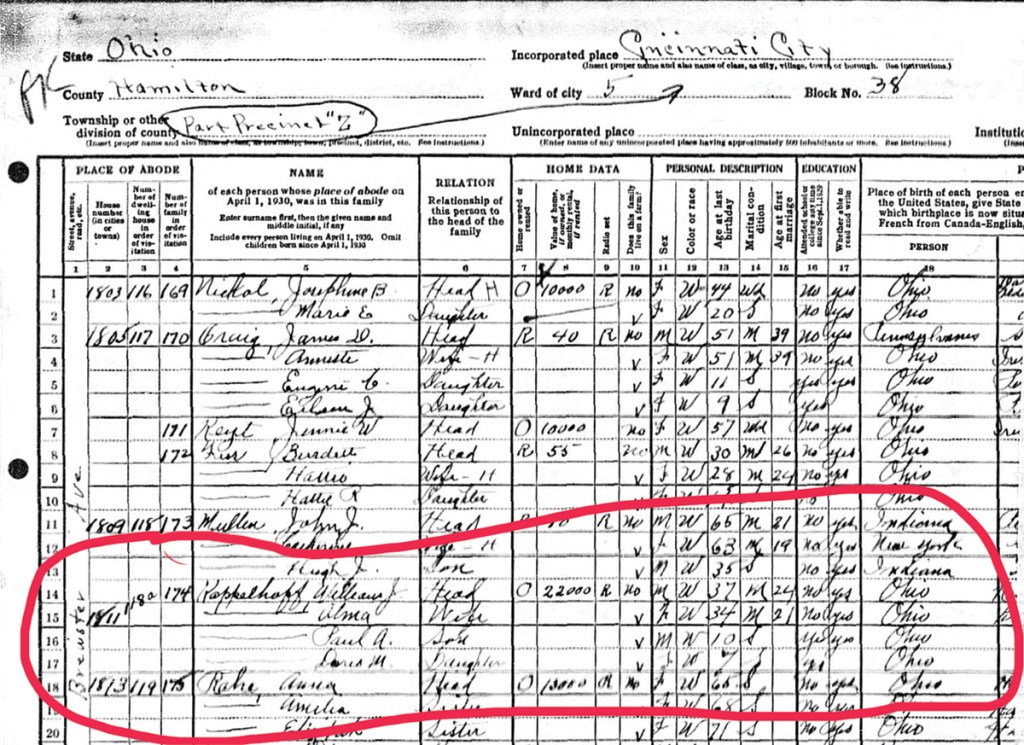 State Ohio
Incorporated place Cincinnati City
(Insert proper name and also name of class, as city, village, town, or borough. See instructions.)
County Hamilton
Ward of city 5
Block No. 38
Township or other
division of county Part Precinct "Z"
(Insert proper name and also name of class, as township, town, precinct, district, etc. See instructions.)
Unincorporated place
(Enter name of any unincorporated place having approximately 500 inhabitants or more. See instructions.)
Instituti
PLACE OF ABODE
NAME
of each person whose place of abode on
April 1, 1930, was in this family
Enter surname first, then the given name and
middle initial, if any
Include every person living on April 1, 1930. Omit
children born since April 1, 1930
RELATION
Relationship of
this person to
the head of the
family
HOME DATA
PERSONAL DESCRIPTION
EDUCATION
Place of birth of each person en
the United States, give State
which birthplace is now situa
French from Canada-English,
PERSON
Street, avenue, road, etc.
House number (in cities or towns)
Number of dwelling house in order of visitation
Number of family in order of visitation
Home owned or rented
Value of home, if owned, or monthly rental, if rented
Radio set
Does this family live on a farm?
Sex
Color or race
Age at last birthday
Marital condition
Age at first marriage
Attended school or college any time since Sept. 1, 1929
Whether able to read and write
1 2 3 4 5 6 7 8 9 10 11 12 13 14 15 16 17 18
Brewster Ave
1 1803 116 169 Nickol, Josephine B. Head H O 10000 R no F W 44 Wd no yes Ohio
2 Marie E Daughter V F W 20 S no yes Ohio
3 1805 117 170 Craig, James D. Head R 40 R no M W 51 M 39 no yes Pennsylvania
4 Wife-H V F W 51 M 39 no yes Ohio
5 Eugene C. Daughter V F W 11 S yes yes Ohio
6 Eileen J. Daughter V F W 9 S yes Ohio
7 171 Jennie W Head O 10000 no F W 57 Wd no yes Ohio
8 172 Burdett Head R 55 no M W 30 M 26 no yes Ohio
9 Wife-H V F W 28 M 24 no yes Ohio
10 Hattie R Daughter Ohio
11 1809 118 173 Mullen, John J. Head R R no M W 65 M 21 no yes Indiana
12 Catherine Wife-H V F W 63 M 19 no yes New York
13 Hugh J. Son V M W 35 S no yes Indiana
14 118a 174 Kappelhoff, William J. Head O 22000 R no M W 37 M 24 no yes Ohio
15 1811 Alma Wife V F W 34 M 21 no yes Ohio
16 Paul A. Son V M W 10 S yes yes Ohio
17 Doris M. Daughter V F W 7 S yes Ohio
18 1813 119 175 Anna Head O 13000 R no F W 65 S no yes Ohio
19 Amelia Sister V F W 68 S no yes Ohio
20 Sister V F W 71 S no yes Ohio